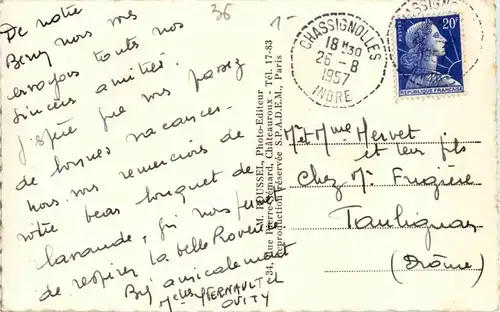 De notre
Berry nous vous
envoyons toutes nos
sincères amitiés.
J'espère que vous passez
de bonnes vacances.
Nous vous remercions de
votre beau bouquet de
lavande, qui nous permet
de respirer la belle Provence
Bien amicalement
Melles PERNAULT et
OUITY
36
1-
CHASSIGNOLLES
18 H30
26 - 8
1957
INDRE
CHASSIGNOLLES
POSTES
20F
REPUBLIQUE FRANÇAISE
M. ROUSSEL, Photo-Editeur
34, Rue Pierre-Gémard, Châteauroux - Tél. 17-83
Reproduction réservée S.P.A.D.E.M., Paris
Mr et Mme Hervet
et leur fils
Chez Mr Frugière
Taulignan
(Drôme)